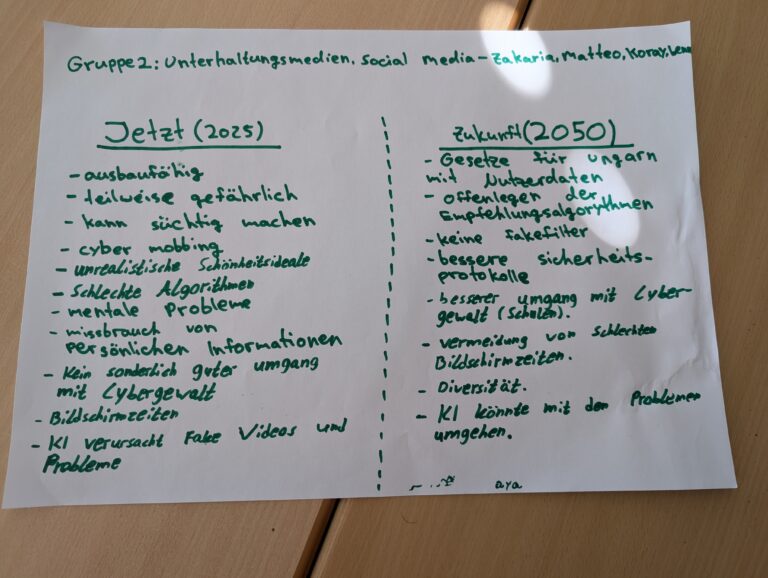 Gruppe 2: Unterhaltungsmedien, Social media - Zakaria, Matteo, Koray,
Jetzt (2025)
- ausbaufähig
- teilweise gefährlich
- kann süchtig machen
- cyber mobbing
- unrealistische Schönheitsideale
- Schlechte Algorithmen
- mentale Probleme
- missbrauch von
persönlichen Informationen
- Kein sonderlich guter umgang
mit Cybergewalt
- Bildschirmzeiten
- KI verursacht Fake Videos und
Probleme
Zukunft (2050)
- Gesetze für ungarn
mit Nutzerdaten
- offenlegen der
Empfehlungsalgorythmen
- keine fakefilter
- bessere sicherheits-
protokolle
- besserer umgang mit Cyber-
gewalt (Schulen).
- vermeidung von Schlechten
Bildschirmzeiten.
- Diversität.
- KI könnte mit den Problemen
umgehen.